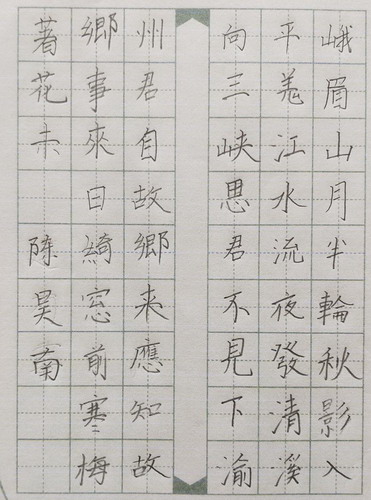 峨眉山月半輪秋影入
平羌江水流夜發清溪
向三峽思君不見下渝
州君自故鄉来應知故
鄉事來日綺窓前寒梅
著花未 陳昊南